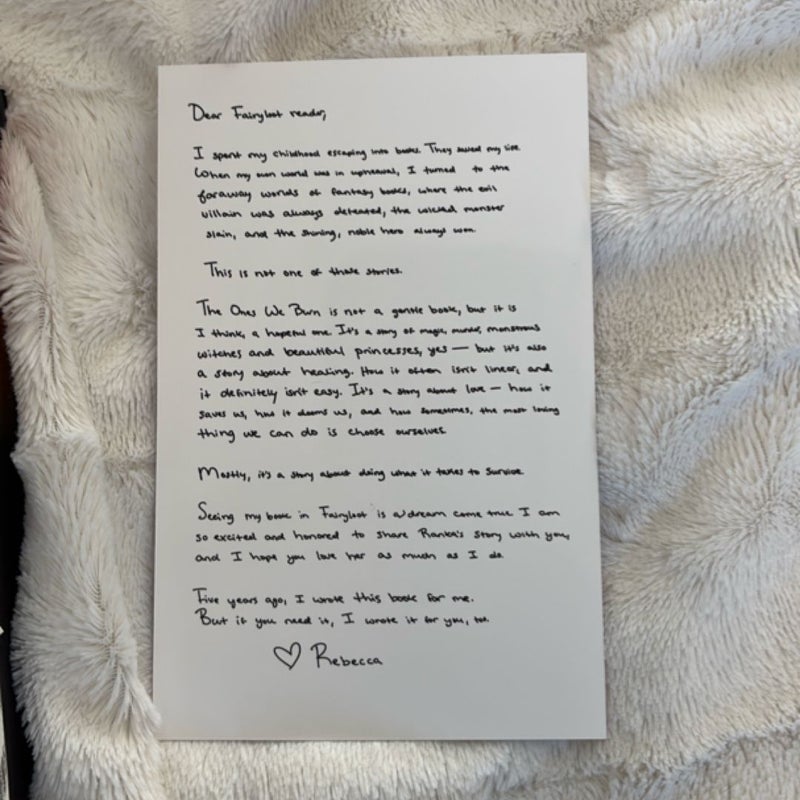 Dear Fairyloot reader,
I spent my childhood escaping into books. They saved my life.
When my own world was in upheaval, I turned to the
faraway worlds of fantasy books, where the evil
villain was always defeated, the wicked monster
slain, and the shining, noble hero always won.
This is not one of those stories.
The Ones We Burn is not a gentle book, but it is
I think, a hopeful one. It's a story of magic, murder, monstrous
witches and beautiful princesses, yes — but it's also
a story about healing. How it often isn't linear, and
it definitely isn't easy. It's a story about love — how it
saves us, how it dooms us, and how sometimes, the most loving
thing we can do is choose ourselves.
Mostly, it's a story about doing what it takes to survive.
Seeing my book in Fairyloot is a dream come true. I am
so excited and honored to share Ranka's story with you,
and I hope you love her as much as I do.
Five years ago, I wrote this book for me.
But if you need it, I wrote it for you, too.
♡ Rebecca